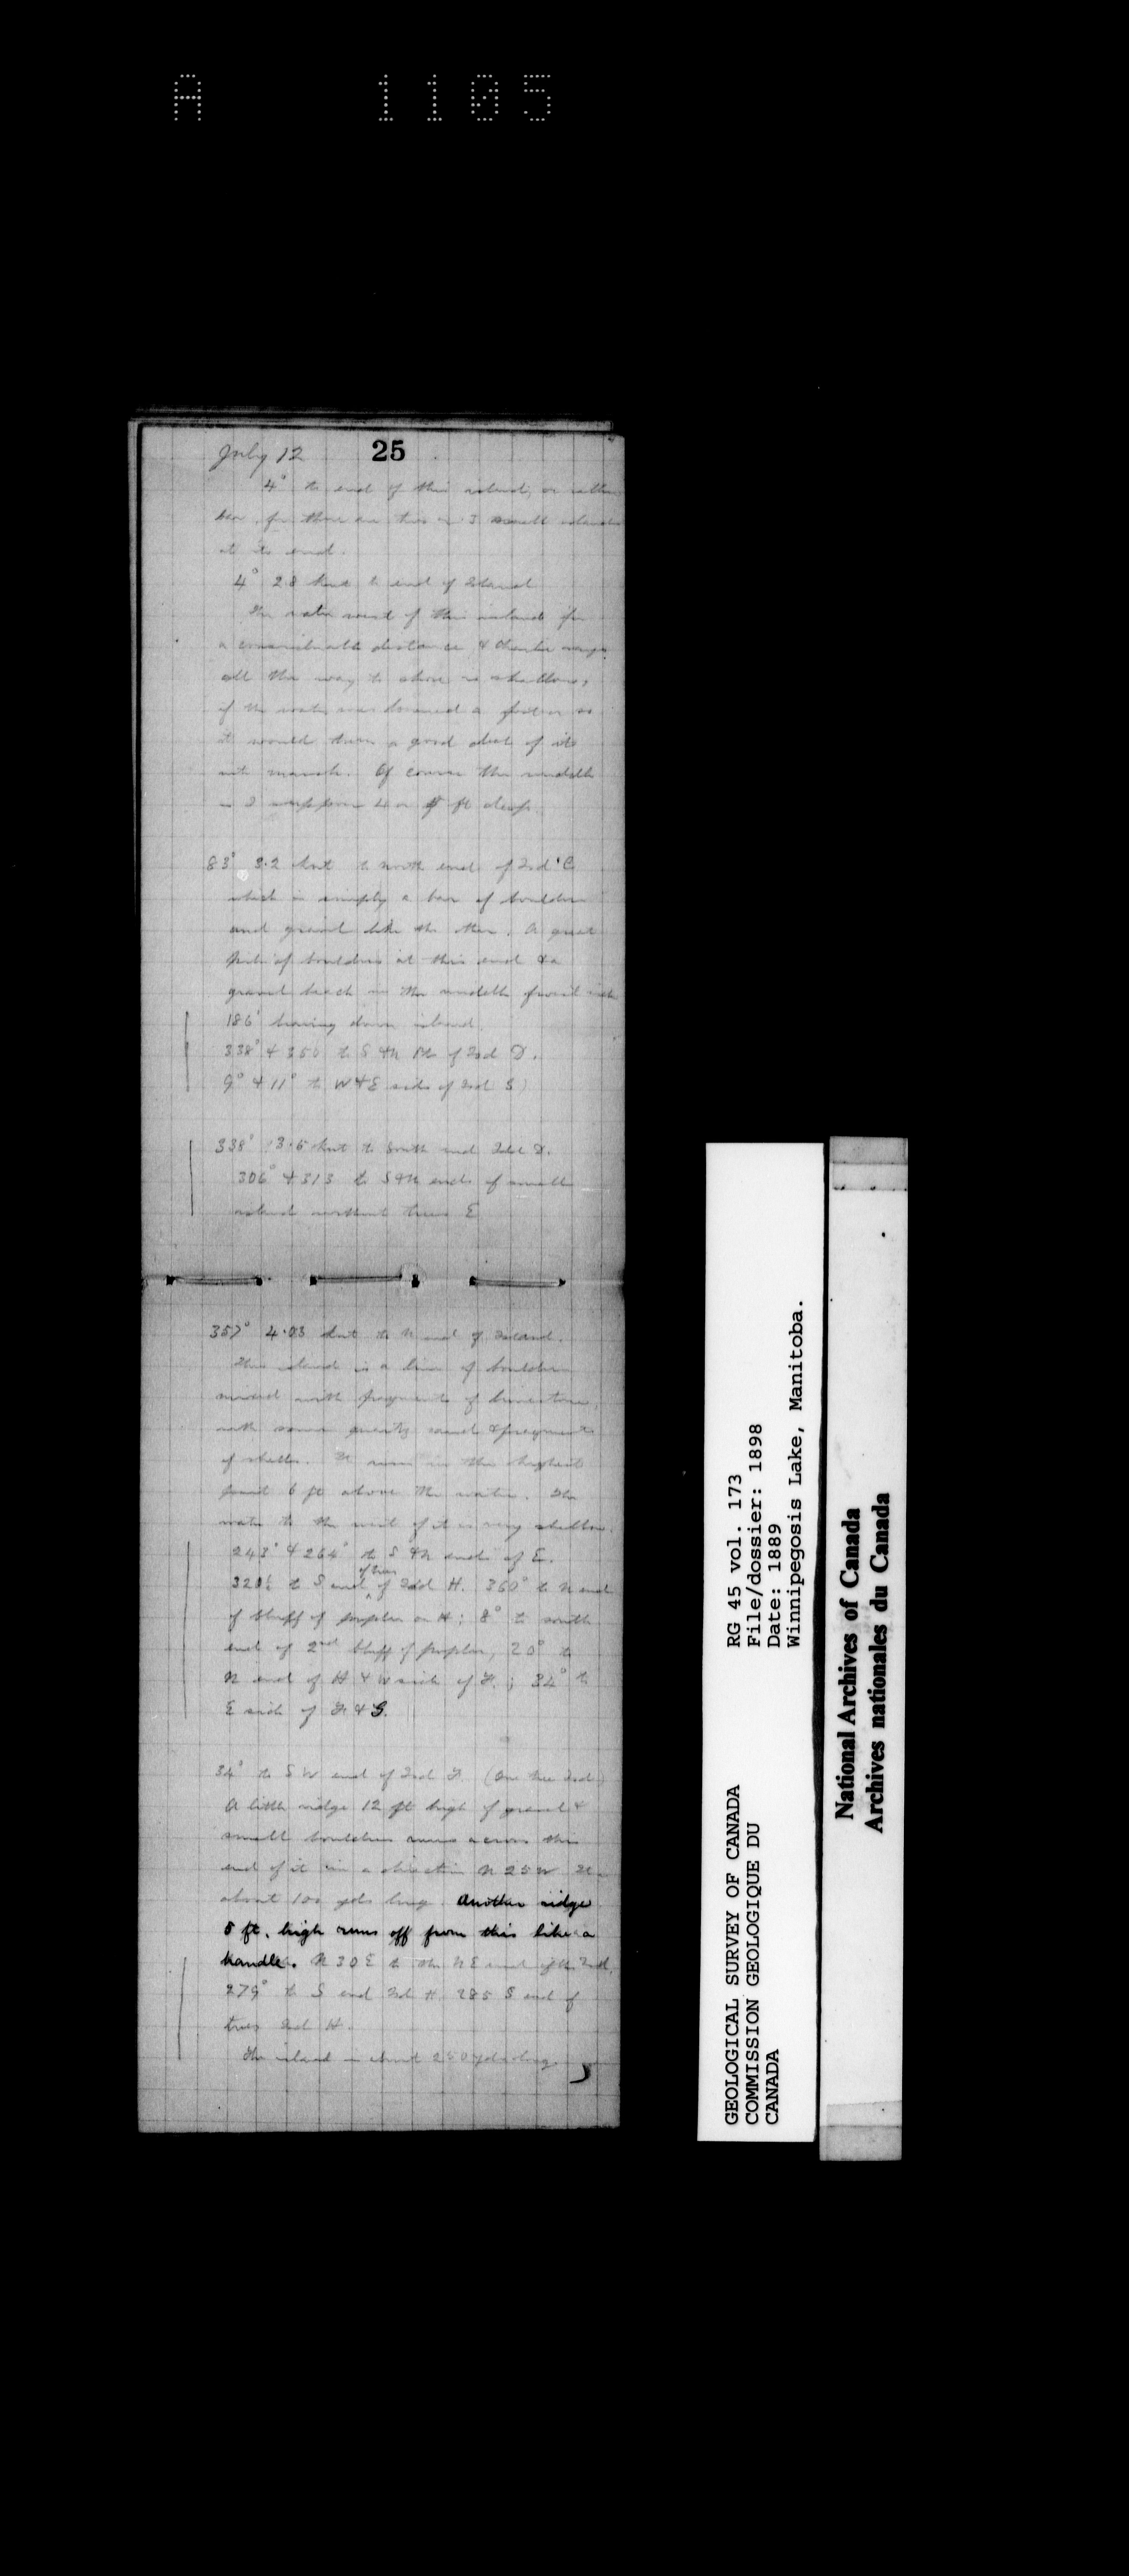 A 1105
July 12 25
4° to end of this island, or rather
bar, for there are two or 3 small islands
at its end.
4° 28 to end of Island
The water west of this island for
a considerable distance &
all the way to shore is shallow,
if the water was lowered a foot or so
it would turn a good deal of it
into marsh. Of course the middle
is I suppose 4 or 5 ft deep.
83° 3.2 knt to north end of Isd C
which is simply a bar of boulders
and gravel like the other. A great
pile of boulders at this end & a
gravel beach in the middle
186° bearing down island
338° & 350 to S & N Pts of Isd D.
9° & 11° to W & E side of Isd
338° 3.5 knt to South end Isld D.
306° & 313 to S & N ends of small
island without trees E
357° 4.03 knt to N end of Island.
This island is a line of boulders
mixed with fragments of limestone,
with some sand & fragments
of shells. It rises in the highest
point 6 ft above the water. The
water to the west of it is very shallow.
243° & 264° to S & N ends of E.
320½ to S end of trees of Isld H. 360° to N end
of bluff of poplar on H; 8° to south
end of 2nd bluff of poplar, 20° to
N end of H & W side of F.; 34° to
E side of F & G.
34° to S W end of Isd F.
A little ridge 12 ft high of gravel &
small boulders runs across the
end of it in a direction N 25 W
about 100 yds long. Another ridge
5 ft. high runs off from this like a
handle. N 30 E to the N E end of the Isd.
279° to S end Isd H. 285 S end of
trees Isd H.
The island is about 250 yds long
GEOLOGICAL SURVEY OF CANADA
COMMISSION GEOLOGIQUE DU
CANADA
RG 45 vol. 173
File/dossier: 1898
Date: 1889
Winnipegosis Lake, Manitoba.
National Archives of Canada
Archives nationales du Canada